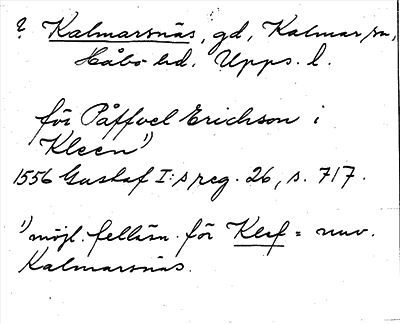 ? Kalmarsnäs, gd, Kalmar sn,
Håbo hd. Upps. l.
för Påffvel Erichson i
Kleen¹)
1556 Gustaf I:s reg. 26, s. 717.
¹) möjl. felläsn. för Klef = nuv.
Kalmarsnäs.